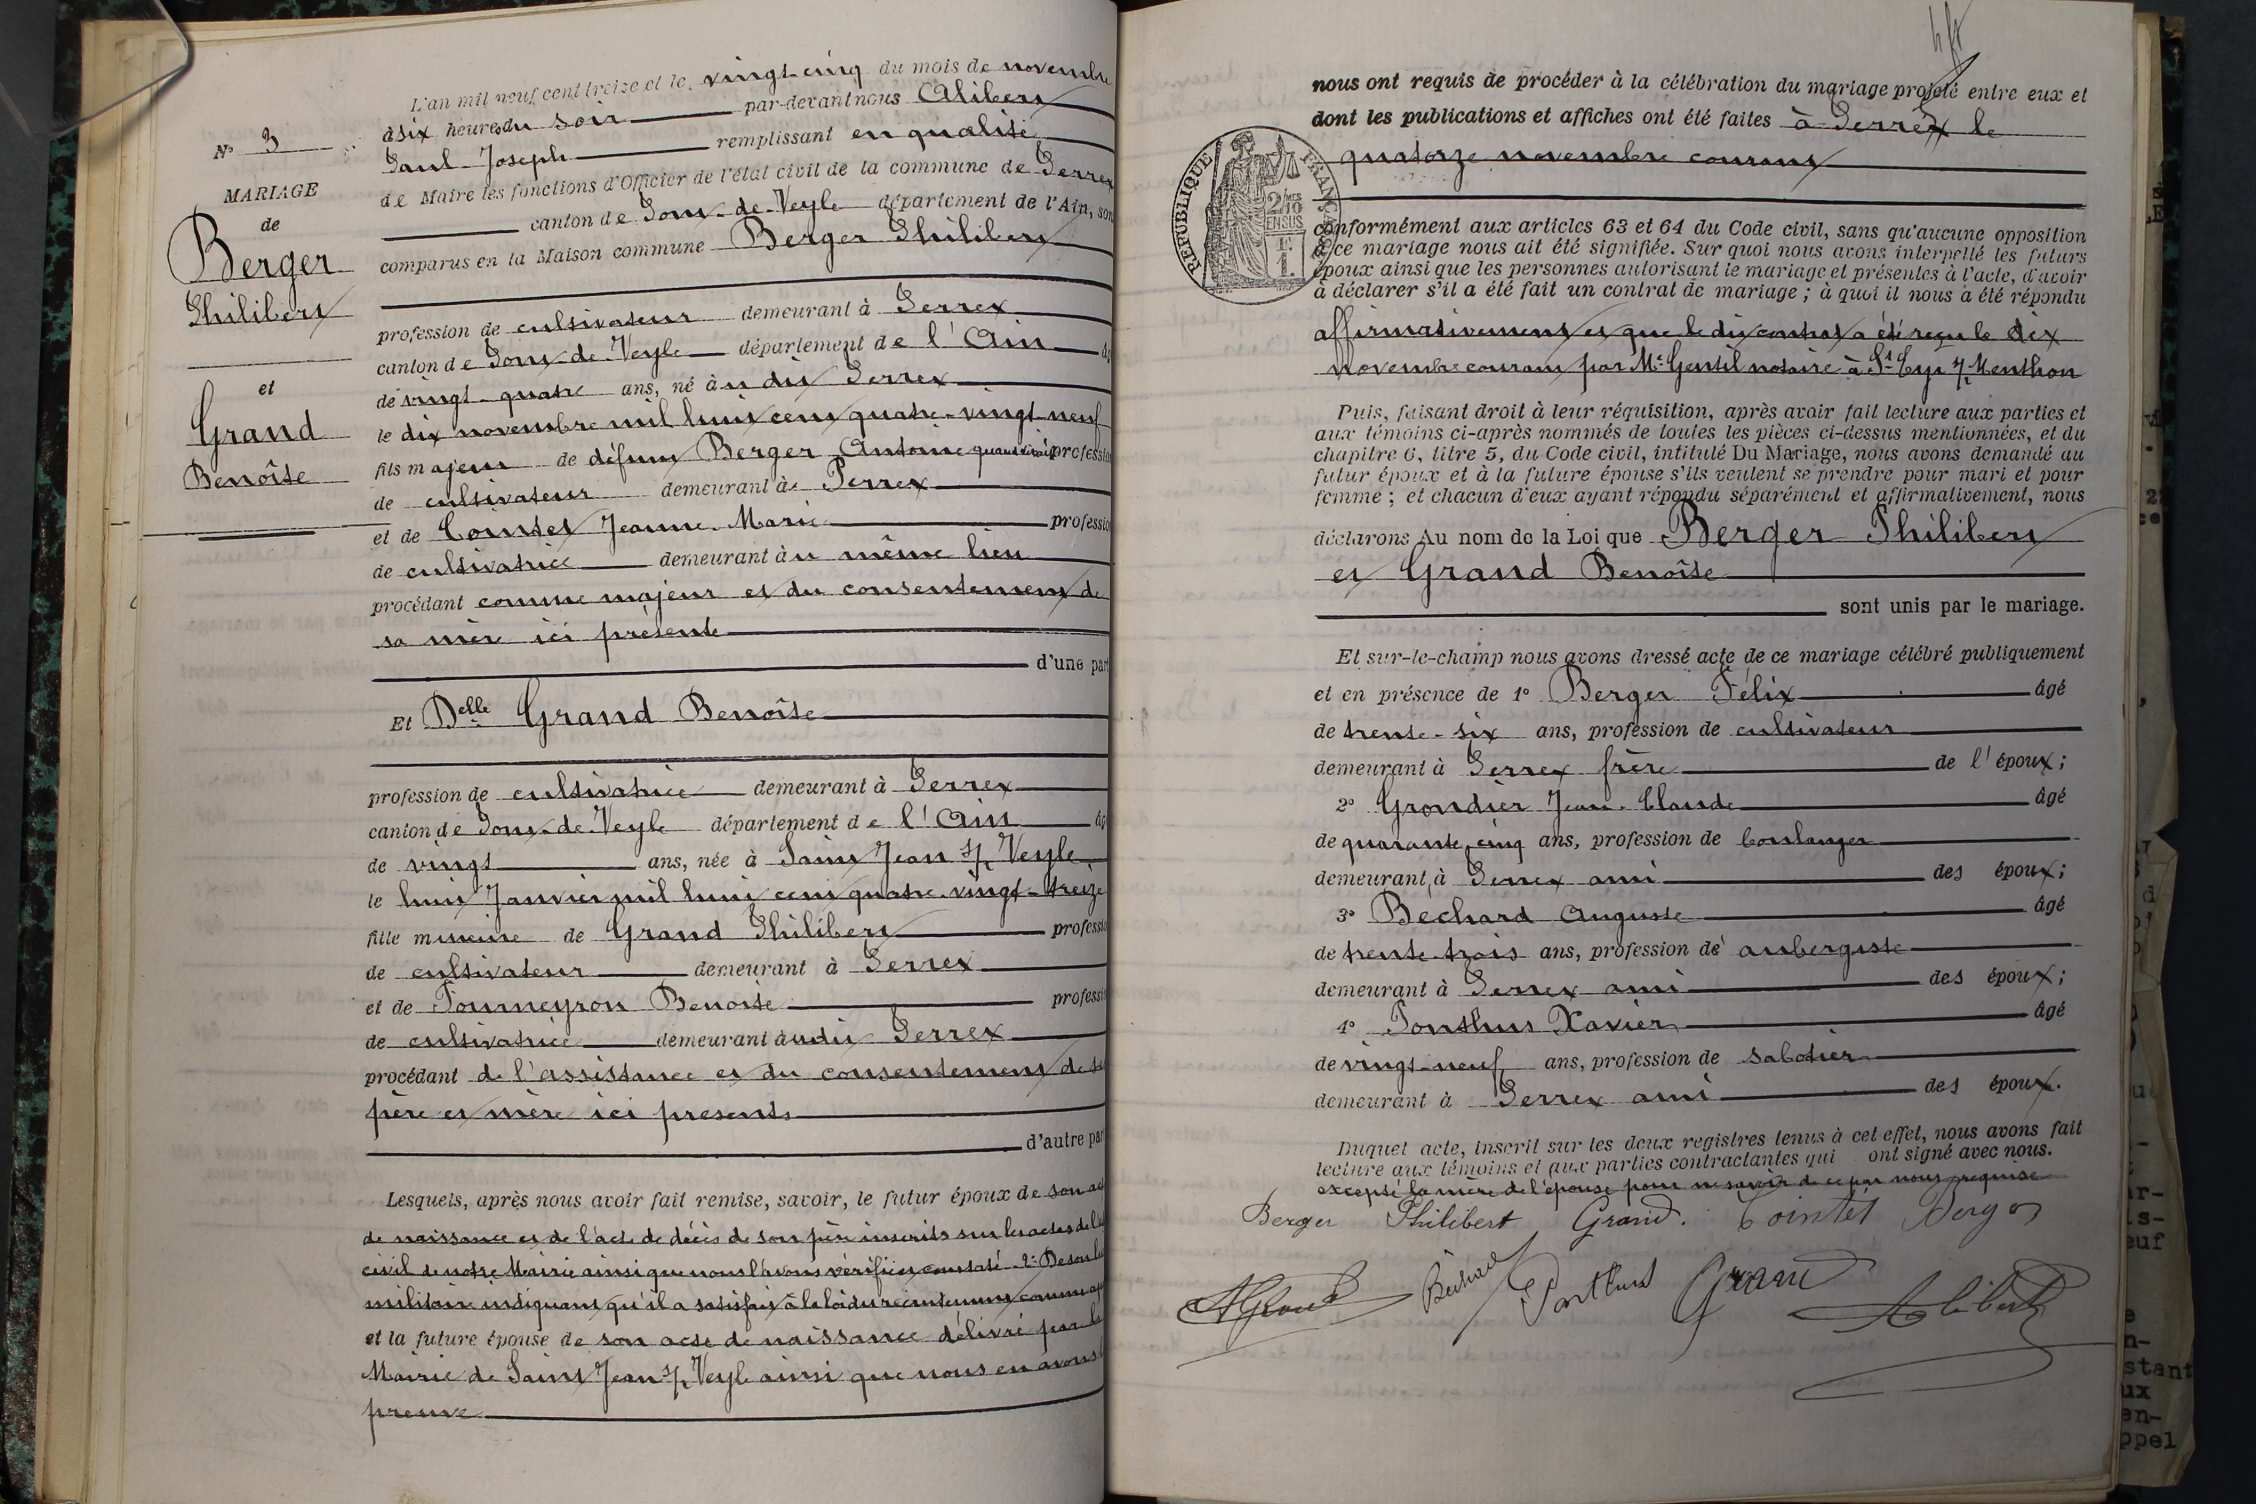 N° 3
MARIAGE
de
Berger
Philibert
et
Grand
Benoîte
L'an mil neuf cent treize et le vingt-cinq du mois de novembre
à six heures du soir par-devant nous Alibert
Paul Joseph remplissant en qualité
de Maire les fonctions d'Officier de l'état civil de la commune de Perrex
canton de Pont-de-Veyle département de l'Ain, sont
comparus en la Maison commune Berger Philibert
profession de cultivateur demeurant à Perrex
canton de Pont-de-Veyle département de l'Ain
de vingt-quatre ans, né à u dit Perrex
le dix novembre mil huit cent quatre-vingt-neuf
fils majeur de défunt Berger Antoine quand vivait profession
de cultivateur demeurant à Perrex
et de Cointet Jeanne-Marie profession
de cultivatrice demeurant àu même lieu
procédant comme majeur et du consentement de
sa mère ici présente
d'une part
Et Delle Grand Benoîte
profession de cultivatrice demeurant à Perrex
canton de Pont-de-Veyle département de l'Ain
de vingt ans, née à Saint Jean s/ Veyle
le huit Janvier mil huit cent quatre-vingt-treize
fille mineure de Grand Philibert profession
de cultivateur demeurant à Perrex
et de Benoîte profession
de cultivatrice demeurant àudit Perrex
procédant de l'assistance et du consentement de ses
père et mère ici présents
d'autre part
Lesquels, après nous avoir fait remise, savoir, le futur époux de son acte
de naissance et de l'acte de décès de son père inscrits sur les actes de l'état
civil de notre Mairie ainsi que nous l'avons vérifié et constaté 2° De son
militaire indiquant qu'il a satisfait à la loi du recrutement
et la future épouse de son acte de naissance délivré par la
Mairie de Saint Jean s/ Veyle ainsi que nous en avons
preuve
nous ont requis de procéder à la célébration du mariage projeté entre eux et
dont les publications et affiches ont été faites à Perrex le
quatorze novembre courant
RÉPUBLIQUE FRANÇAISE
2/10 EN SUS
1F.
conformément aux articles 63 et 64 du Code civil, sans qu'aucune opposition
à ce mariage nous ait été signifiée. Sur quoi nous avons interpellé les futurs
époux ainsi que les personnes autorisant le mariage et présentes à l'acte, d'avoir
à déclarer s'il a été fait un contrat de mariage ; à quoi il nous a été répondu
affirmativement et que le dit contrat a été reçu le dix
Novembre courant par Me Gentil notaire à St Cyr s/ Menthon
Puis, faisant droit à leur réquisition, après avoir fait lecture aux parties et
aux témoins ci-après nommés de toutes les pièces ci-dessus mentionnées, et du
chapitre 6, titre 5, du Code civil, intitulé Du Mariage, nous avons demandé au
futur époux et à la future épouse s'ils veulent se prendre pour mari et pour
femme ; et chacun d'eux ayant répondu séparément et affirmativement, nous
déclarons Au nom de la Loi que Berger Philibert
et Grand Benoîte
sont unis par le mariage.
Et sur-le-champ nous avons dressé acte de ce mariage célébré publiquement
et en présence de 1° Berger Félix âgé
de trente-six ans, profession de cultivateur
demeurant à Perrex frère de l'époux ;
2° Grondier Jean-Claude âgé
de quarante-cinq ans, profession de boulanger
demeurant à Perrex ami des époux ;
3° Béchard Auguste âgé
de trente-trois ans, profession de aubergiste
demeurant à Perrex ami des époux ;
4° Ponthus Xavier âgé
de vingt-neuf ans, profession de sabotier
demeurant à Perrex ami des époux.
Duquel acte, inscrit sur les deux registres tenus à cet effet, nous avons fait
lecture aux témoins et aux parties contractantes qui ont signé avec nous.
excepté la mère de l'épouse pour ne savoir de ce par nous requise
Berger Philibert Grand. Cointet Berger
Béchard Ponthus Grand Alibert